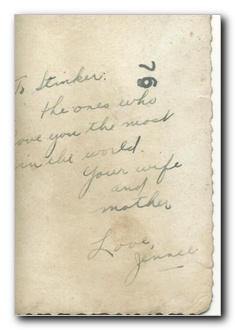 76
To Stinker:
the ones who
love you the most
in the world.
Your wife
and
mother
Love,
Jennie